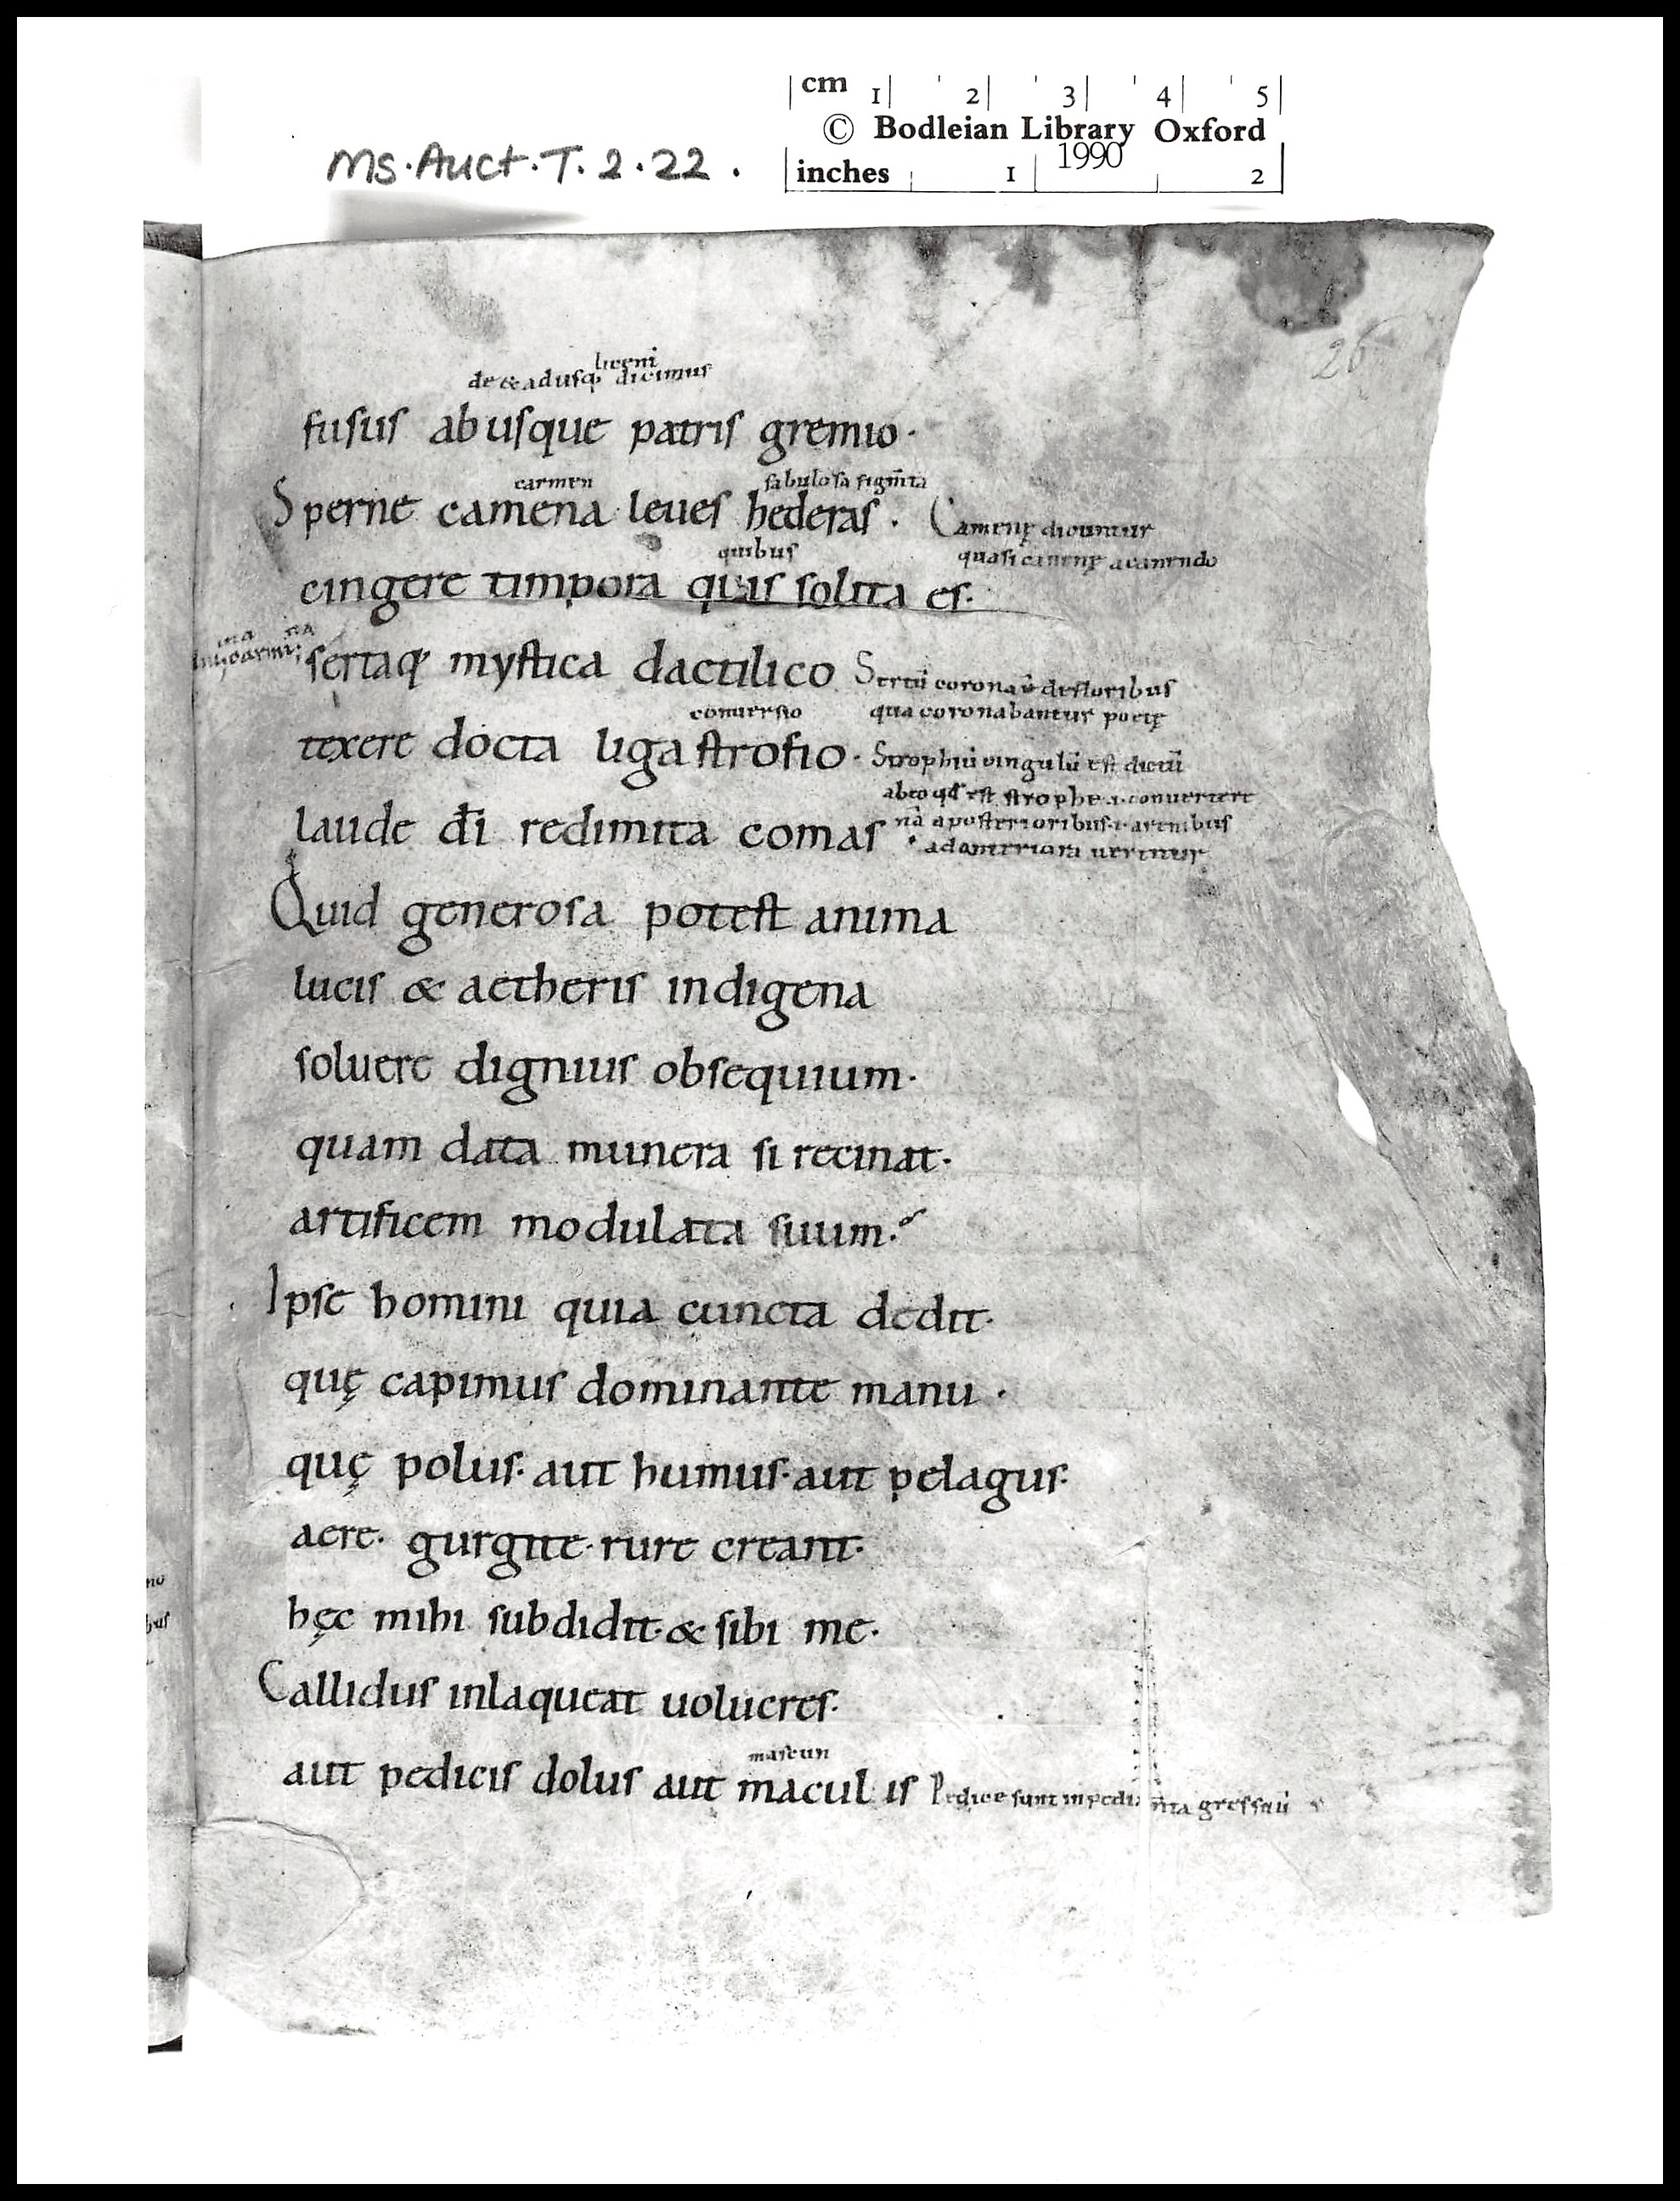 cm 1 2 3 4 5
© Bodleian Library Oxford
1990
inches 1 2
Ms. Auct. T. 2. 22.
26
de & adusq; dicimus
fusus abusque patris gremio·
carmen fabulosa figm̄ta
Sperne camena leues hederas· Camenę dicuntur
quibus quasi canenę a canendo
cingere timpora quis solita es·
sertaq; mystica dactilico Sertū corona ū de floribus
conuersio qua coronabantur poetę
texere docta liga strofio· Strophiū cingulū est dictū
ab eo qđ est strophe·i·conuertere
laude dī redimita comas nā a posterioribus·i·
ad anteriora uertitur
Quid generosa potest anima
lucis & aetheris indigena
soluere dignius obsequium·
quam data munera si recinat·
artificem modulata suum·
Ipse homini quia cuncta dedit·
quę capimus dominante manu·
quę polus· aut humus· aut pelagus·
aere· gurgite· rure creant·
hęc mihi subdidit· & sibi me·
Callidus inlaqueat uolucres·
aut pedicis dolus aut maculis Pedice sunt inpedim̄ta gressuū